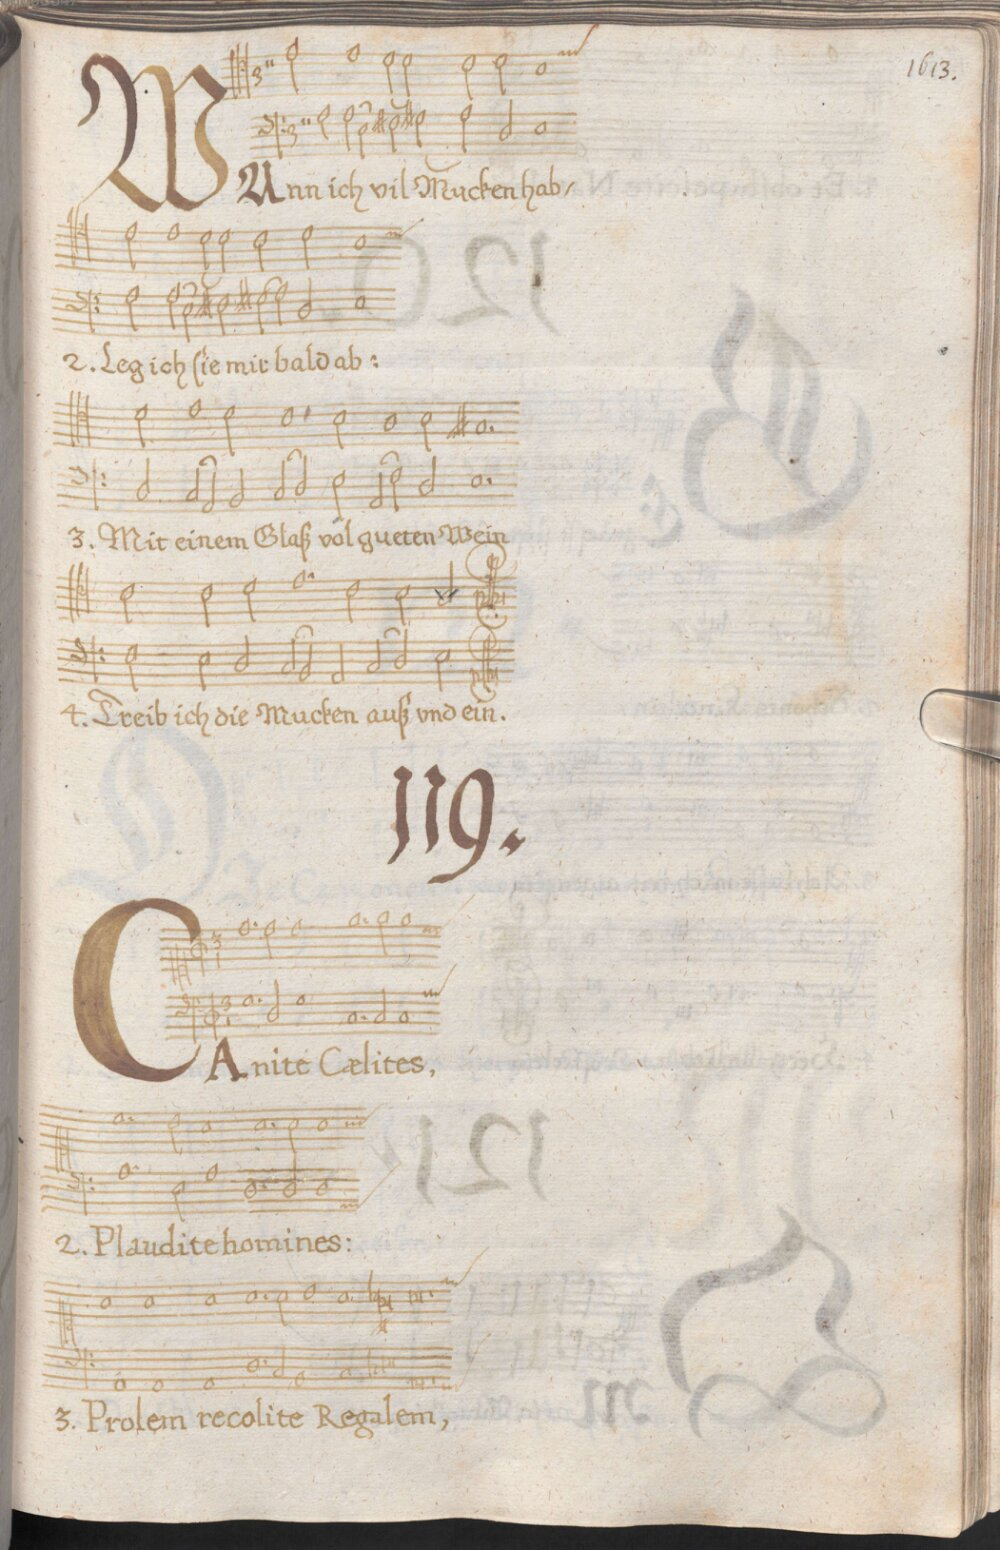 1613.
WAnn ich vil Mucken hab/
2. Leg ich sie mir bald ab:
3. Mit einem Glaß völ gueten Wein
4. Treib ich die Mucken auß vnd ein.
119.
CAnite Cælites,
2. Plaudite homines:
3. Prolem recolite Regalem,